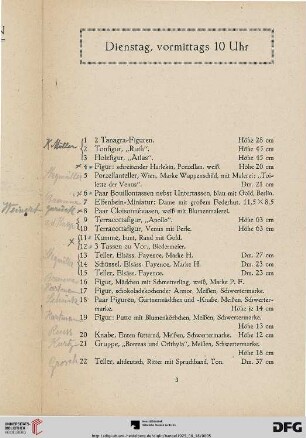 Dienstag, vormittags 10 Uhr
K. Müller
1 2 Tanagra-Figuren. Höhe 26 cm
2 Tonfigur, „Ruth". Höhe 47 cm
3 Holzfigur, „Atlas". Höhe 45 cm
4 Figur: schreiender Harlekin, Porzellan, weiß Höhe 20 cm
5 Porzellanteller, Wien, Marke Wappenschild, mit Malerei: „Toilette der Venus". Dm. 25 cm
6 Paar Bouillontassen nebst Untertassen, blau mit Gold, Berlin.
7 Elfenbein-Miniatur: Dame mit großem Federhut. 11,5×8,5
8 Paar Cloisonnévasen, weiß mit Blumenmalerei.
9 Terracottafigur, „Apollo". Höhe 63 cm
10 Terracottafigur, Venus mit Perle. Höhe 63 cm
11 Kumme, bunt, Rand mit Gold.
12 3 Tassen zu Vori, Biedermeier.
13 Teller, Elsäss. Fayence, Marke H. Dm. 27 cm
14 Schüssel, Elsäss. Fayence, Marke H. Dm. 23 cm
15 Teller, Elsäss. Fayence, Marke H. Dm. 23 cm
16 Figur, Mädchen mit Schmetterling, weiß, Marke P. H.
17 Figur, schokoladekochender Amor, Meißen, Schwertermarke.
18 Paar Figuren, Gärtnermädchen und -Knabe, Meißen, Schwertermarke. Höhe je 14 cm
19 Figur: Putte mit Blumenkörbchen, Meißen, Schwertermarke.
Höhe 13 cm
20 Knabe, Enten fütternd, Meißen, Schwertermarke. Höhe 12 cm
21 Gruppe, „Boreas und Orithyia", Meißen, Schwertermarke.
Höhe 18 cm
22 Teller, altdeutsch, Ritter mit Spruchband, Ton. Dm. 37 cm
3
UNIVERSITÄTS-
BIBLIOTHEK
HEIDELBERG
DFG